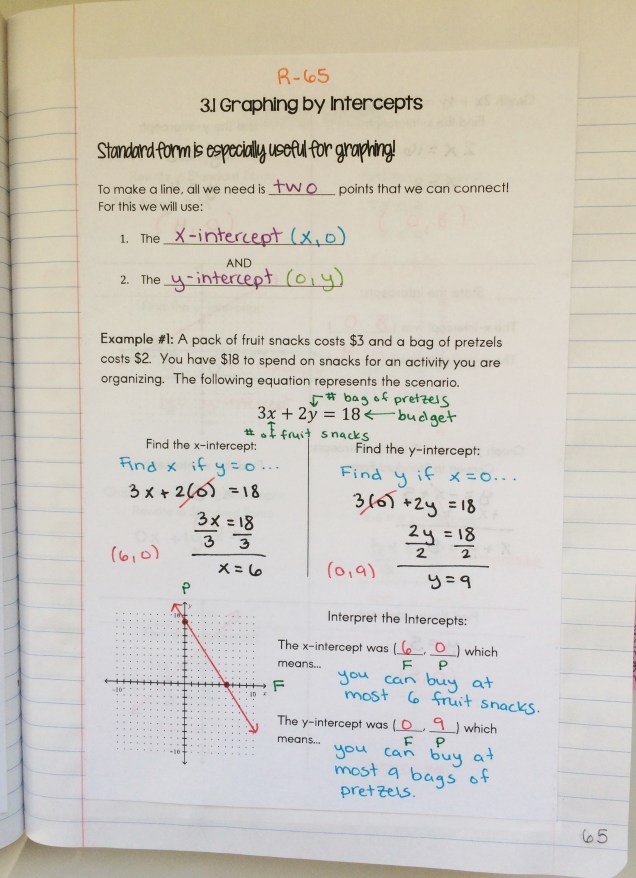 R-65
3.1 Graphing by Intercepts
Standard form is especially useful for graphing!
To make a line, all we need is two points that we can connect!
For this we will use:
1. The x-intercept (x,0)
AND
2. The y-intercept (0,y)
Example #1: A pack of fruit snacks costs $3 and a bag of pretzels
costs $2. You have $18 to spend on snacks for an activity you are
organizing. The following equation represents the scenario.
↓ # bag of pretzels
3x + 2y = 18 ← budget
# of fruit snacks
Find the x-intercept:
Find x if y=0...
3x + 2(0) = 18
3x = 18
3 3
(6,0)
x = 6
Find the y-intercept:
Find y if x=0...
3(0) + 2y = 18
2y = 18
2 2
(0,9)
y = 9
P
10 y
-10 10 x F
-10
Interpret the Intercepts:
The x-intercept was (6, 0) which
means... F P
you can buy at
most 6 fruit snacks.
The y-intercept was (0, 9) which
means... F P
you can buy at
most 9 bags of
pretzels.
65